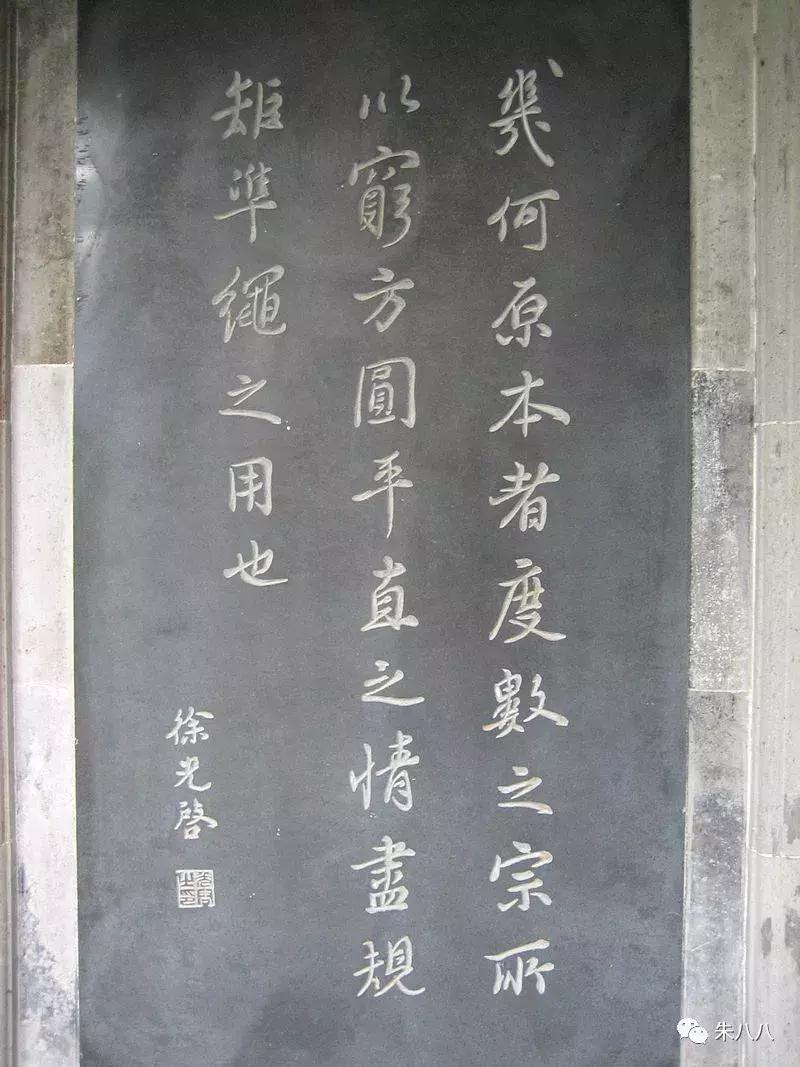 幾何原本者度數之宗所
以窮方圓平直之情盡規
矩準繩之用也
徐光啓
朱八八